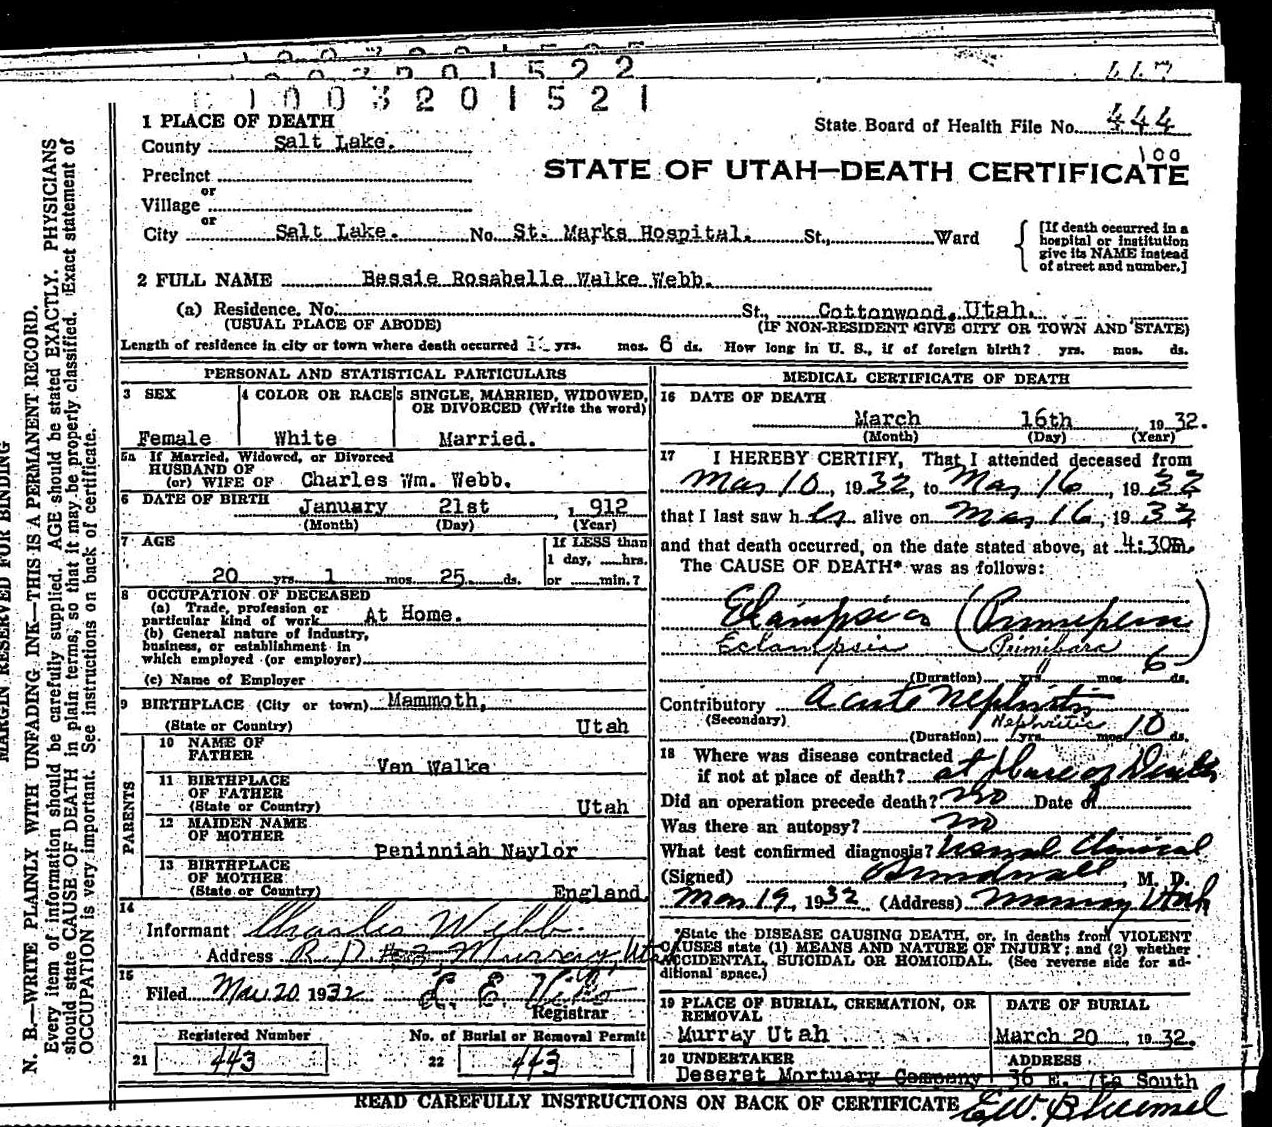 1003201522
1003201521
1 PLACE OF DEATH
County Salt Lake.
State Board of Health File No. 444
100
Precinct
or
Village
or
STATE OF UTAH—DEATH CERTIFICATE
City Salt Lake. No. St. Marks Hospital. St., Ward
[If death occurred in a hospital or institution give its NAME instead of street and number.]
2 FULL NAME Bessie Rosabelle Walke Webb.
(a) Residence. No. St., Cottonwood, Utah.
(USUAL PLACE OF ABODE) (IF NON-RESIDENT GIVE CITY OR TOWN AND STATE)
Length of residence in city or town where death occurred yrs. mos. 6 ds. How long in U. S., if of foreign birth? yrs. mos. ds.
PERSONAL AND STATISTICAL PARTICULARS
3 SEX
Female
4 COLOR OR RACE
White
5 SINGLE, MARRIED, WIDOWED, OR DIVORCED (Write the word)
Married.
5a If Married, Widowed, or Divorced
HUSBAND OF
(or) WIFE OF Charles Wm. Webb.
6 DATE OF BIRTH January 21st, 1912
(Month) (Day) (Year)
7 AGE
20 yrs. 1 mos. 25 ds.
If LESS than
1 day, hrs.
or min.?
8 OCCUPATION OF DECEASED
(a) Trade, profession or
particular kind of work At Home.
(b) General nature of industry,
business, or establishment in
which employed (or employer)
(c) Name of Employer
9 BIRTHPLACE (City or town) Mammoth,
(State or Country) Utah
PARENTS
10 NAME OF
FATHER Van Walke
11 BIRTHPLACE
OF FATHER
(State or Country) Utah
12 MAIDEN NAME
OF MOTHER Peninniah Naylor
13 BIRTHPLACE
OF MOTHER
(State or Country) England
14
Informant Charles Webb.
Address R.D. #3 Murray, Utah
15
Filed Mar 20 1932 L. E.
Registrar
Registered Number
21 443
No. of Burial or Removal Permit
22 443
MEDICAL CERTIFICATE OF DEATH
16 DATE OF DEATH
March 16th 1932.
(Month) (Day) (Year)
17 I HEREBY CERTIFY, That I attended deceased from
Mar 10, 1932, to Mar 16, 1932
that I last saw her alive on Mar 16, 1932
and that death occurred, on the date stated above, at 4:30 m.
The CAUSE OF DEATH* was as follows:
Eclampsia (Primipera)
Eclampsia Primipara
(Duration) yrs. mos. 6 ds.
Contributory Acute Nephritis
(Secondary) Nephritic
(Duration) yrs. mos. 10 ds.
18 Where was disease contracted
if not at place of death? at place of Death
Did an operation precede death? no Date of
Was there an autopsy? no
What test confirmed diagnosis? Usual Clinical
(Signed) M. D.
Mar 19, 1932 (Address) Murray Utah
*State the DISEASE CAUSING DEATH, or, in deaths from VIOLENT
CAUSES state (1) MEANS AND NATURE OF INJURY; and (2) whether
ACCIDENTAL, SUICIDAL OR HOMICIDAL. (See reverse side for ad-
ditional space.)
19 PLACE OF BURIAL, CREMATION, OR
REMOVAL
Murray Utah
DATE OF BURIAL
March 20 1932.
20 UNDERTAKER
Deseret Mortuary Company
ADDRESS
36 E. 7th South
READ CAREFULLY INSTRUCTIONS ON BACK OF CERTIFICATE E.W.
MARGIN RESERVED FOR BINDING
N. B.—WRITE PLAINLY WITH UNFADING INK—THIS IS A PERMANENT RECORD.
Every item of information should be carefully supplied. AGE should be stated EXACTLY. PHYSICIANS
should state CAUSE OF DEATH in plain terms, so that it may be properly classified. Exact statement of
OCCUPATION is very important. See instructions on back of certificate.